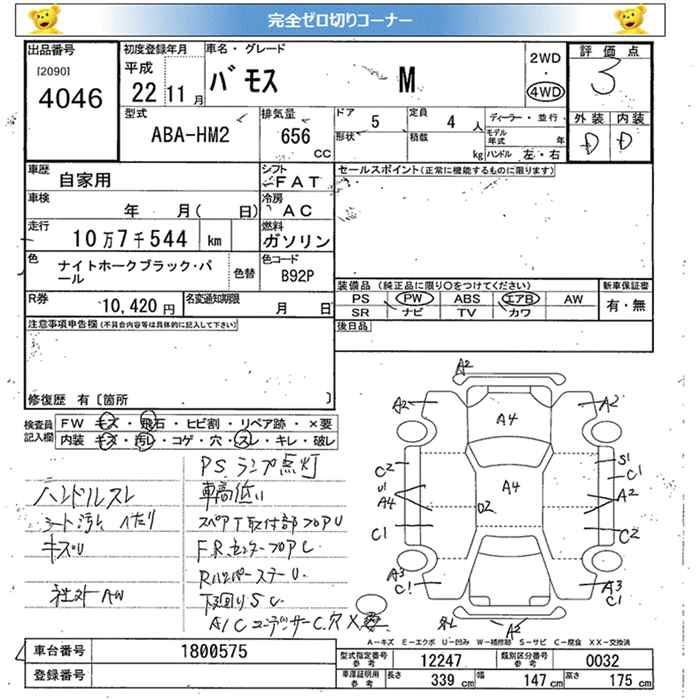 完全ゼロ切りコーナー
出品番号
[2090]
4046
初度登録年月
平成
22 11 月
車名・グレード
バモス M
2WD
・
4WD
評価点
3
型式
ABA-HM2
排気量
656
CC
ドア
5
定員
4 人
形状
積載
kg
ディーラー・並行
モデル年式 年
ハンドル 左・右
外装 内装
D D
車歴
自家用
シフト
FAT
セールスポイント(正常に機能するものに限ります)
車検
年 月( 日)
冷房
AC
走行
10万7千544 km
燃料
ガソリン
色
ナイトホークブラック・パール
色替
色コード
B92P
R券
10,420 円
名変通知期限
月 日
装備品(純正品に限り○をつけてください)
PS PW ABS エアB AW
SR ナビ TV カワ
新車保証書
有・無
後日品
注意事項申告欄(不具合内容等は具体的に記入して下さい)
修復歴 有〔箇所 〕
検査員記入欄
FW キズ・飛石・ヒビ割・リペア跡・×要
内装 キズ・汚レ・コゲ・穴・スレ・キレ・破レ
PSランプ点灯
ハンドルスレ
車高低い
シート汚レ イタミ
スペアT取付部フロアU
キズU
FRセンターフロアC
社外AW
下回りSC
A/CコンデンサーC穴X要
A2
A2
A2
A4
C2
S1
C1
U1
A4
A4
A2
U2
C1
C2
A3
C1
A3
C1
A2
A-キズ E-エクボ U-凹み W-補修跡 S-サビ C-腐食 XX-交換済
車台番号
1800575
登録番号
型式指定番号
参考
12247
類別区分番号
参考
0032
車庫証明用
参考
長さ
339 cm
幅
147 cm
高さ
175 cm